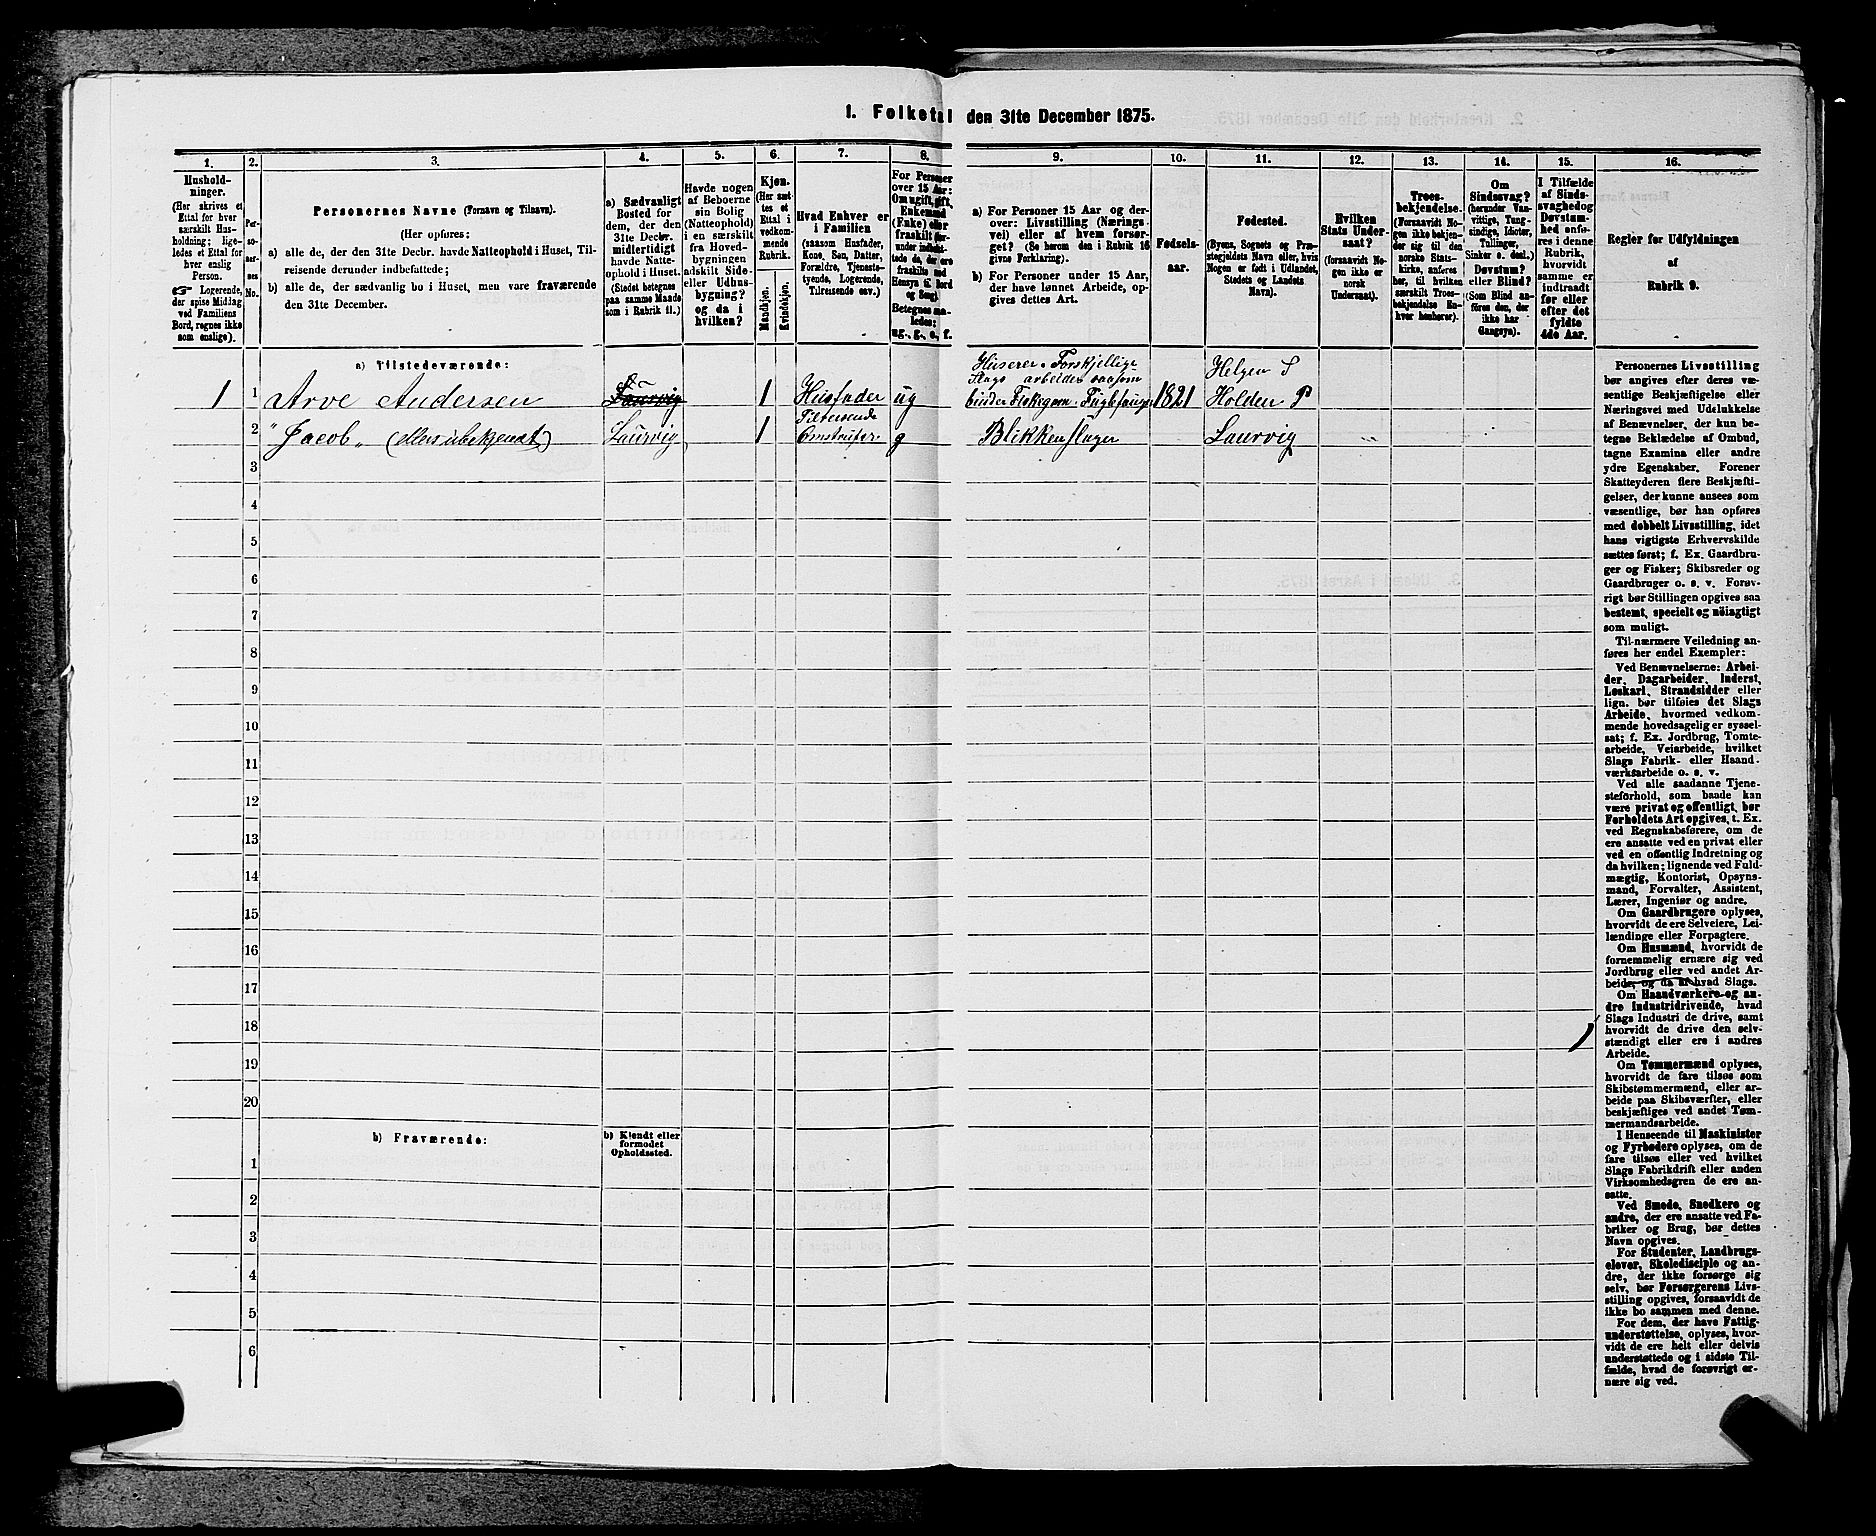 1. Folketal den 31te December 1875.
1. 2. 3. 4. 5. 6. 7. 8. 9. 10. 11. 12. 13. 14. 15. 16.
Hushold-
ninger.
(Her skrives et
Ettal for hver
særskilt Hus-
holdning; lige-
ledes et Ettal for
hver enslig
Person.
☞ Logerende,
der spise Middag
ved Familiens
Bord, regnes ikke
som enslige).
Per-
so-
ner-
nes
No.
Personernes Navne (Fornavn og Tilnavn).
(Her opføres:
a) alle de, der den 31te Decbr. havde Natteophold i Huset, Til-
reisende derunder indbefattede;
b) alle de, der sædvanlig bo i Huset, men vare fraværende
den 31te December.
a) Sædvanligt
Bosted for
dem, der den
31te Decbr.
midlertidigt
havde Natte-
ophold i Huset.
(Stedet betegnes
paa samme Maade
som i Rubrik 11.)
Havde nogen
af Beboerne
sin Bolig
(Natteophold)
i en særskilt
fra Hoved-
bygningen
adskilt Side-
eller Udhus-
bygning?
og da i
hvilken?
Kjøn.
(Her sæt-
tes et
Ettal i
vedkom-
mende
Rubrik.
Mandkjøn.
Kvindekjøn.
Hvad Enhver er
i Familien
(saasom Husfader,
Kone, Søn, Datter,
Forældre, Tjeneste-
tyende, Logerende,
Tilreisende osv.)
For Personer
over 15 Aar:
Om ugift, gift,
Enkemand
(Enke) eller
fraskilt (her-
under indbefat-
tede de, der ere
fraskilte med
Hensyn til Bord
og Seng).
Betegnes saa-
ledes:
ug., g., e., f.
a) For Personer 15 Aar og der-
over: Livsstilling (Nærings-
vei) eller af hvem forsør-
get? (Se herom den i Rubrik 16
givne Forklaring).
b) For Personer under 15 Aar,
der have lønnet Arbeide, op-
gives dettes Art.
Fødsels-
aar.
Fødested.
(Byens, Sognets og Præ-
stegjeldets Navn eller, hvis
Nogen er født i Udlandet,
Stedets og Landets
Navn).
Hvilken
Stats Under-
saat?
(forsaavidt No-
gen ikke er
norsk
Undersaat).
Troes-
bekjendelse.
(Forsaavidt No-
gen ikke bekjen-
der sig til den
norske Stats-
kirke, anføres
her, til hvilken
særskilt Troes-
bekjendelse En-
hver henhører).
Om
Sindssvag?
(herunder Van-
vittige, Tung-
sindige, Idioter,
Tullinger,
Sinker o. desl.)
Døvstum?
eller Blind?
(Som Blind an-
føres den, der
ikke har
Gangsyn).
I Tilfælde
af Sinds-
svaghed og
Døvstum-
hed anfø-
res i denne
Rubrik,
hvorvidt
samme er
indtraadt
før eller
efter det
fyldte
4de Aar.
Regler for Udfyldningen
af
Rubrik 9.
a) Tilstedeværende:
1 1 Arve Andersen Laurvig 1 Husfader ug Huserer. Forskjellige
Slags arbeider saasom
binder Fiskegarn. 1821 Helgen S
Holden P
2 "Jacob" (ellers ubekjendt) Laurvig 1 Tilreisende
g Blikkenslager Laurvig
3
4
5
6
7
8
9
10
11
12
13
14
15
16
17
18
19
20
b) Fraværende: b) Kjendt eller
formodet
Opholdssted.
1
2
3
4
5
6
Personernes Livsstilling
bør angives efter deres væ-
sentlige Beskjæftigelse eller
Næringsvei med Udelukkelse
af Benævnelser, der kun be-
tegne Beklædelse af Ombud,
tagne Examina eller andre
ydre Egenskaber. Forener
Skatteyderen flere Beskjæfti-
gelser, der kunne ansees som
væsentlige, bør han opføres
med dobbelt Livsstilling, idet
hans vigtigste Erhvervskilde
sættes først; f. Ex. Gaardbru-
ger og Fisker; Skibsreder og
Gaardbruger o. s. v. Forøv-
rigt bør Stillingen opgives saa
bestemt, specielt og nöiagtigt
som muligt.
Til nærmere Veiledning an-
føres her endel Exempler:
Ved Benævnelserne: Arbei-
der, Dagarbeider, Inderst,
Løskarl, Strandsidder eller
lign. bør tilføies det Slags
Arbeide, hvormed vedkom-
mende hovedsagelig er syssel-
sat; f. Ex. Jordbrug, Tomte-
arbeide, Veiarbeide, hvilket
Slags Fabrik- eller Haand-
værksarbeide o. s. v.
Ved alle saadanne Tjene-
steforhold, som baade kan
være privat og offentligt, bør
Forholdets Art opgives, t. Ex.
ved Regnskabsførere, om de
ere ansatte ved en privat eller
ved en offentlig Indretning og
da hvilken; lignende ved Fuld-
mægtig, Kontorist, Opsyns-
mand, Forvalter, Assistent,
Lærer, Ingeniør og andre.
Om Gaardbrugere oplyses,
hvorvidt de ere Selveiere, Lei-
lændinge eller Forpagtere.
Om Husmænd, hvorvidt de
fornemmelig ernære sig ved
Jordbrug eller ved andet Ar-
beide, og da af hvad Slags.
Om Haandværkere og an-
dre Industridrivende, hvad
Slags Industri de drive, samt
hvorvidt de drive den selv-
stændigt eller ere i andres
Arbeide.
Om Tømmermænd oplyses,
hvorvidt de fare tilsøs som
Skibstømmermænd, eller ar-
beide paa Skibsværfter, eller
beskjæftiges ved andet Tøm-
mermandsarbeide.
I Henseende til Maskinister
og Fyrbødere oplyses, om de
fare tilsøs eller ved hvilket
Slags Fabrikdrift eller anden
Virksomhedsgren de ere an-
satte.
Ved Smede, Snedkere og
andre, der ere ansatte ved Fa-
briker og Brug, bør dettes
Navn opgives.
For Studenter, Landbrugs-
elever, Skoledisciple og an-
dre, der ikke forsørge sig
selv, bør Forsørgerens Livs-
stilling opgives, forsaavidt de
ikke bo sammen med denne.
For dem, der have Fattig-
understøttelse, oplyses, hvor-
vidt de ere helt eller delvis
understøttede og i sidste Til-
fælde, hvad de forøvrigt er-
nære sig ved.